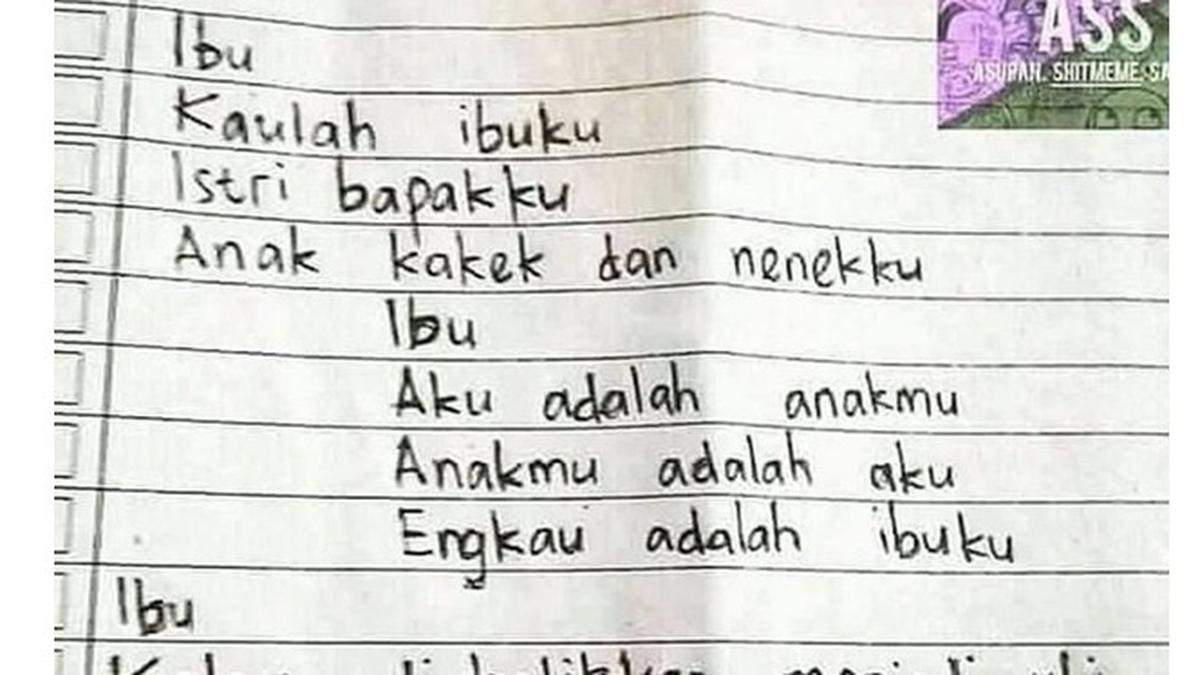 Ibu
Kaulah ibuku
Istri bapakku
Anak kakek dan nenekku
Ibu
Aku adalah anakmu
Anakmu adalah aku
Engkau adalah ibuku
Ibu
ASS
ASUPAN. SHITMEME.